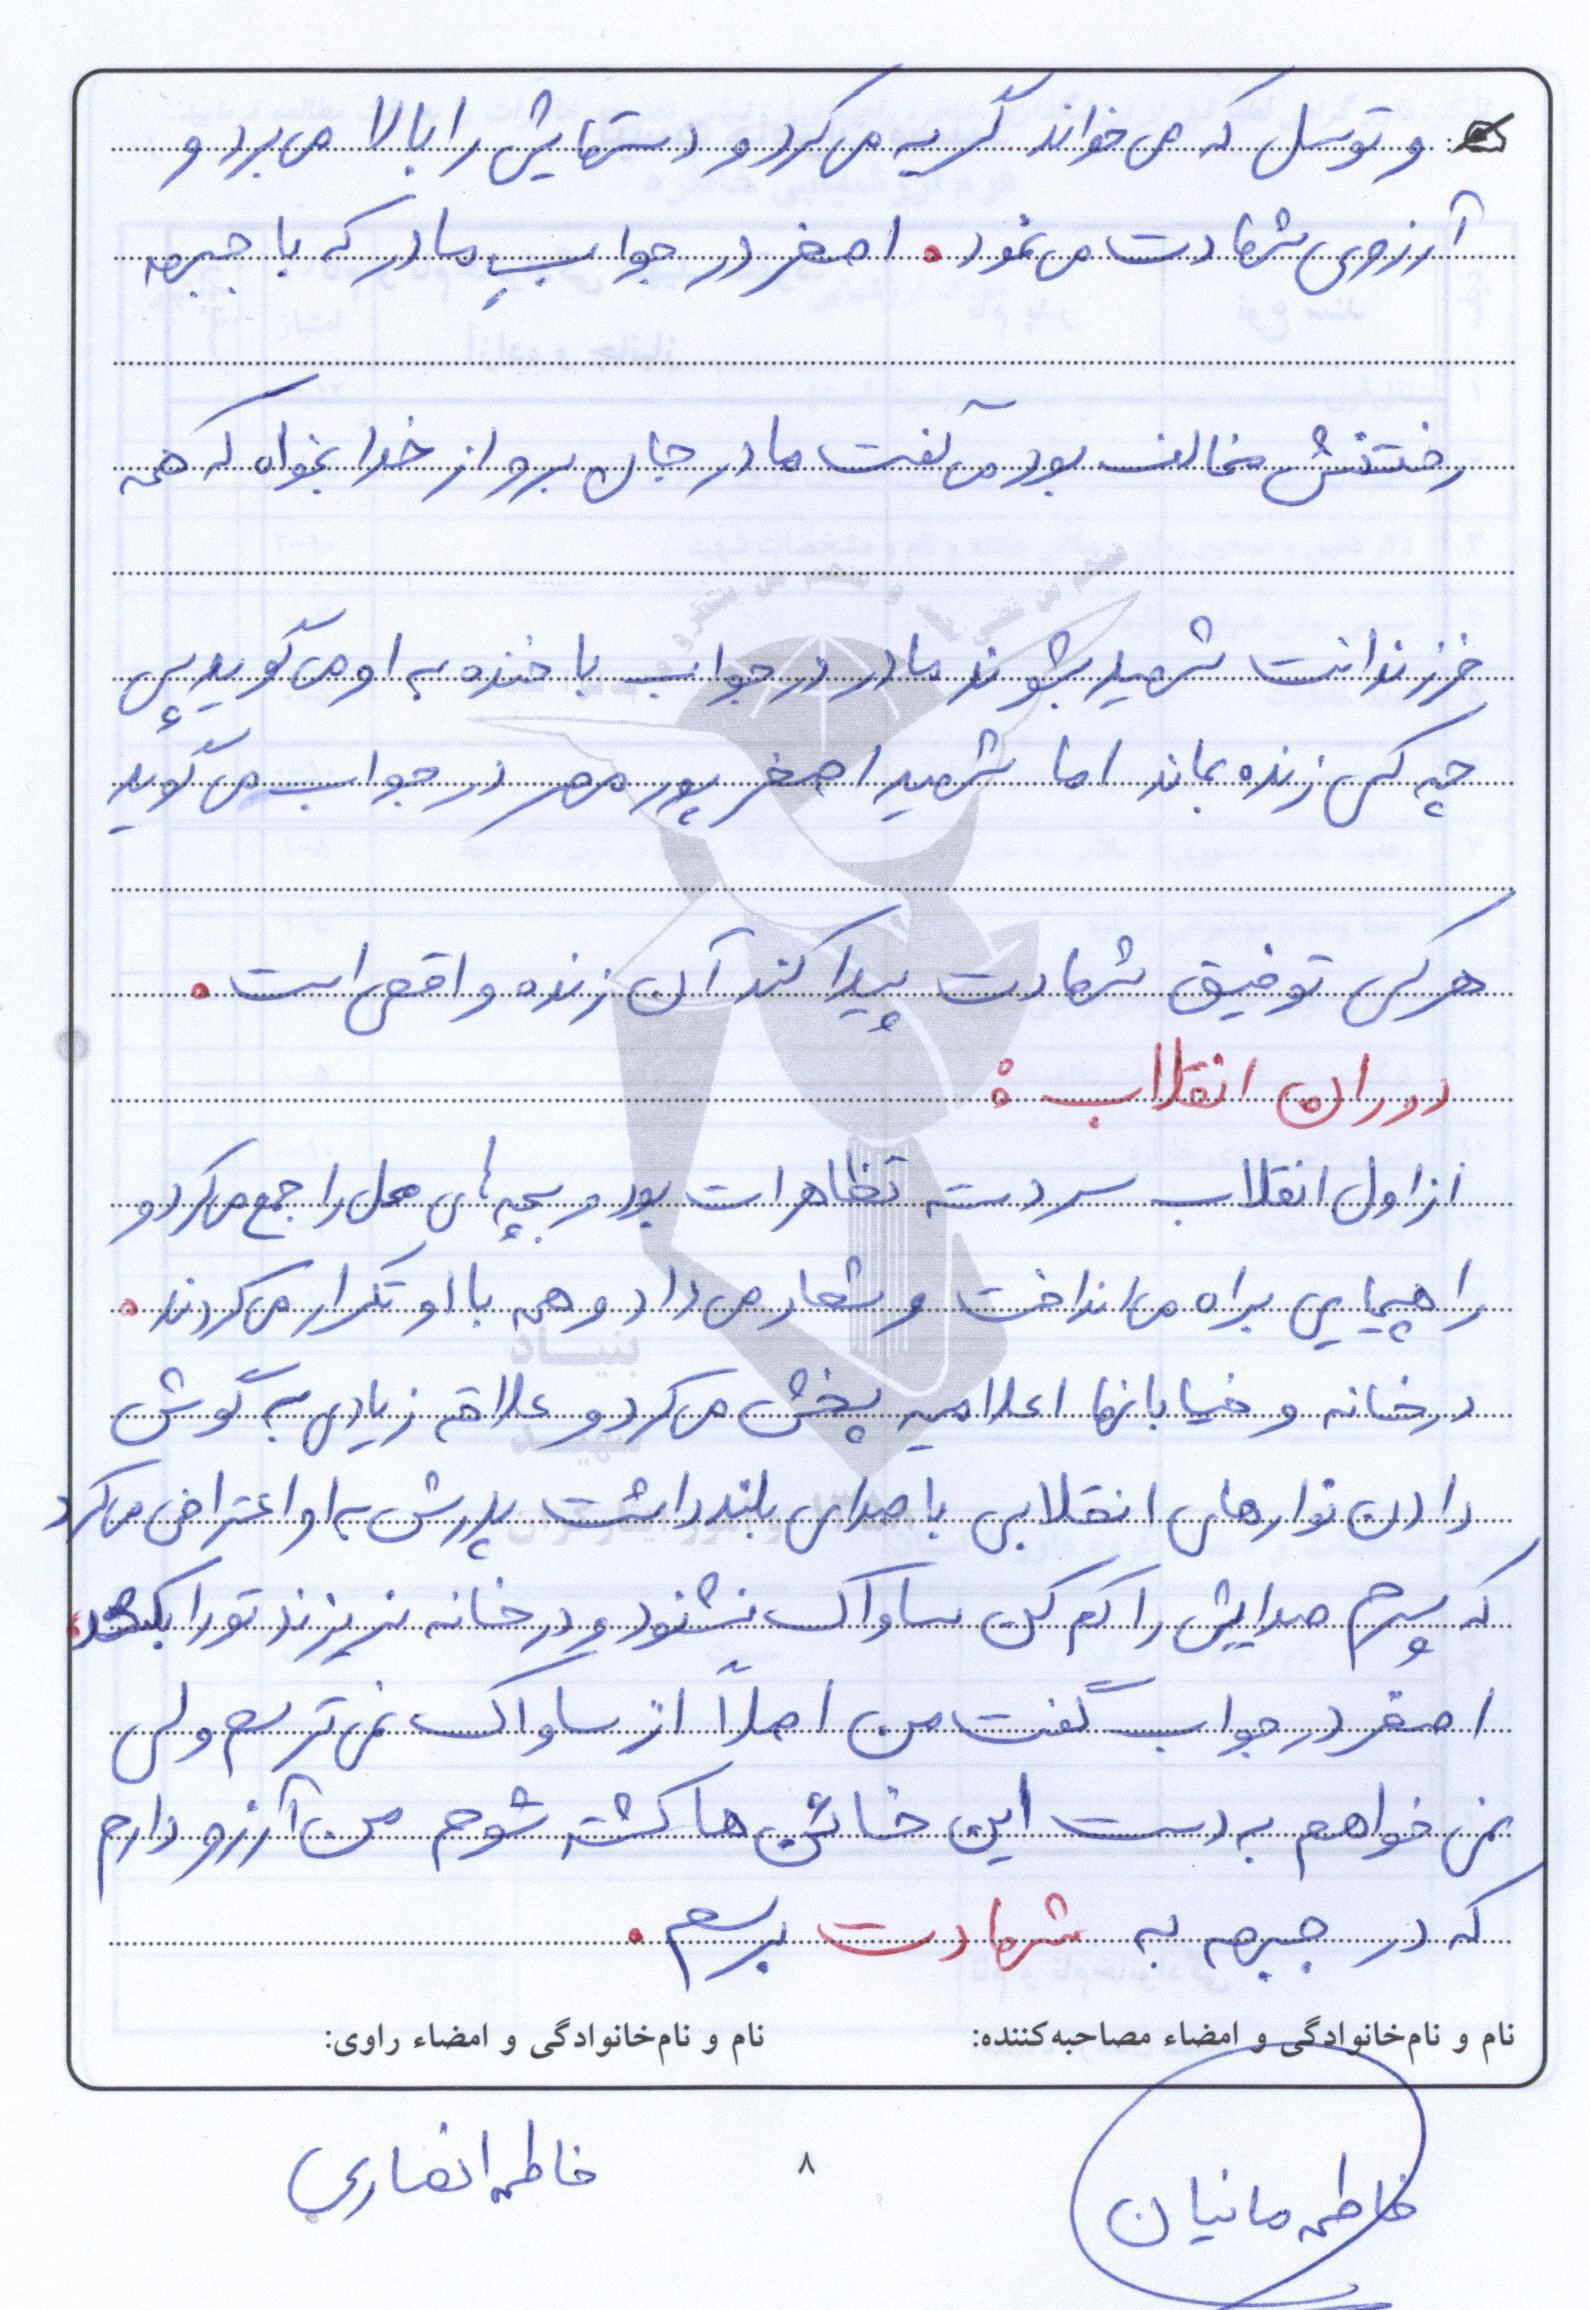 و توسل که می‌خواند گریه می‌کرد و دستهایش را بالا می‌برد و
آرزوی شهادت می‌نمود. اصغر در جواب مادر که با جبهه
رفتنش مخالف بود می‌گفت مادر جان برو از خدا بخواه که همه
فرزندانت شهید بشوند مادر در جواب با خنده به او می‌گوید پس
چه کسی زنده بماند اما شهید اصغر پور مهر در جواب می‌گوید
هر کس توفیق شهادت پیدا کند آن زنده واقعی است.
دوران انقلاب:
از اول انقلاب سر دسته تظاهرات بود و بچه های محل را جمع می‌کرد و
راهپیمایی براه می‌انداخت و شعار می‌داد و همه با او تکرار می‌کردند.
در خانه و خیابانها اعلامیه پخش می‌کرد و علاقه زیادی به گوش
دادن نوارهای انقلابی با صدای بلند داشت پدرش به او اعتراض می‌کرد
که پسرم صدایش را کم کن ساواک نشنود و در خانه نریزند تو را بکشند.
اصغر در جواب گفت من اصلاً از ساواک نمی‌ترسم ولی
نمی‌خواهم به دست این خائن ها کشته شوم من آرزو دارم
که در جبهه به شهادت برسم.
نام و نام‌خانوادگی و امضاء مصاحبه‌کننده: نام و نام‌خانوادگی و امضاء راوی:
فاطمه مانیان فاطمه انصاری
۸
بنیاد
شهید